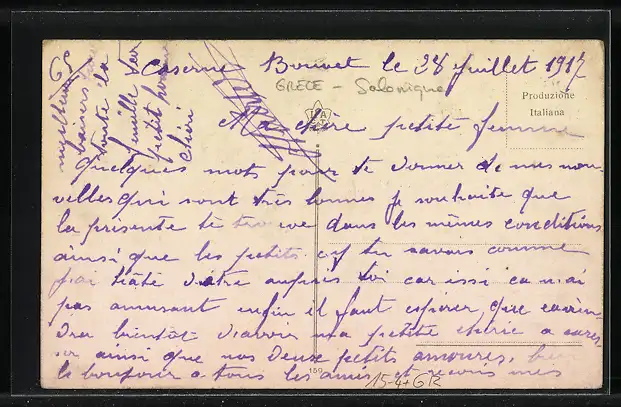 Caserne Bouvet le 28 Juillet 1917
GRÈCE - Salonique
Produzione
Italiana
Ma chère petite femme
Quelques mots pour te donner de mes nou-
velles qui sont très bonnes je souhaite que
la présente te trouve dans les mêmes conditions
ainsi que les petits si tu savais comme
j'ai hâte d'être auprès toi car issi ca n'ai
pas amusant enfin il faut espérer que
dra bientôt d'avoir ma petite chérie a cares
ser ainsi que nos deux petits amoures, bien
le bonjour a tous les amis et recois mes
meilleurs
baisers
toute la
famille ton
petit
chéri
159
15-4+GR